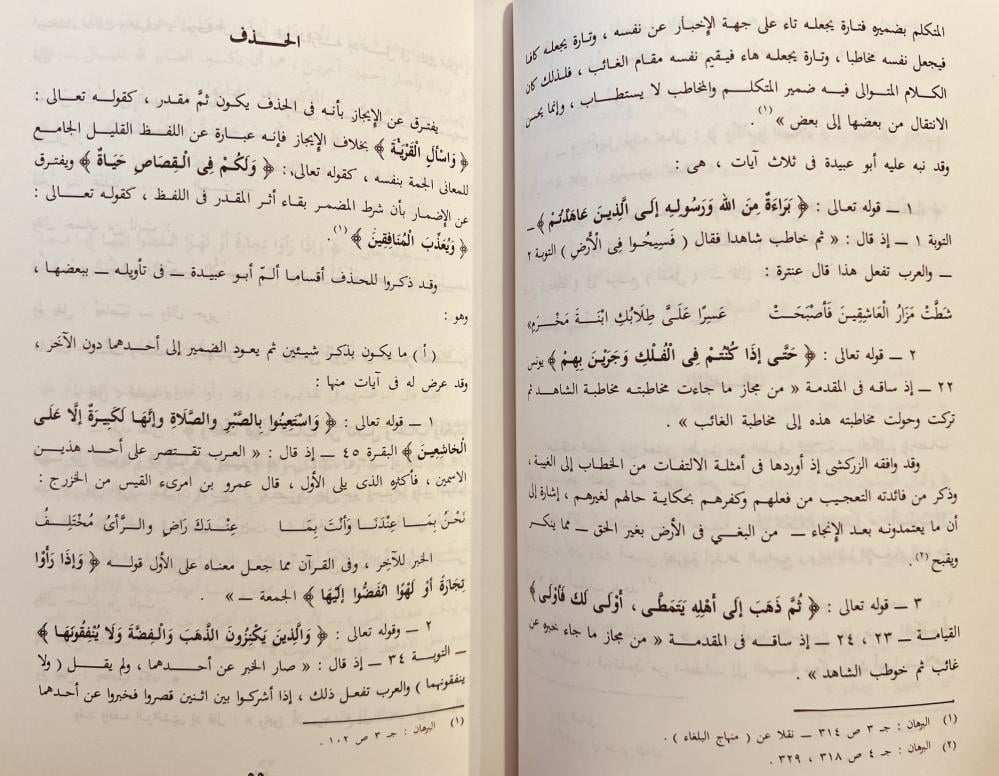 المتكلم بضميره فتارة يجعله تاء على جهة الإخبار عن نفسه ، وتارة يجعله كافا
فيجعل نفسه مخاطبا ، وتارة يجعله هاء فيقيم نفسه مقام الغائب ، فلذلك كان
الكلام المتوالى فيه ضمير المتكلم والمخاطب لا يستطاب ، وإنما يحسن
الانتقال من بعضها إلى بعض » (١) .
وقد نبه عليه أبو عبيدة فى ثلاث آيات ، هى :
١ ــ قوله تعالى : ﴿ بَرَاءَةٌ مِنَ الله وَرَسُولِهِ إلَى الَّذِينَ عَاهَدْتُمْ ﴾ ــ
التوبة ١ ــ إذ قال : « ثم خاطب شاهدا فقال ( فَسِيحُوا فِى الْأَرْضِ ) التوبة ٢
ــ والعرب تفعل هذا قال عنترة :
شَطَّتْ مَزَارُ الْعَاشِقِينَ فَأصْبَحَتْ عَسِرًا عَلَّى طِلَابُكِ ابْنَةَ مَخْرَمِ»
٢ ــ قوله تعالى : ﴿ حَتَّى إذَا كُنْتُمْ فِى الْفُلْكِ وَجَرَيْنَ بِهِمْ ﴾ يونس
٢٢ ــ إذ ساقه فى المقدمة « من مجاز ما جاءت مخاطبته مخاطبة الشاهد ثم
تركت وحولت مخاطبته هذه إلى مخاطبة الغائب » .
وقد وافقه الزركشى إذ أوردها فى أمثلة الالتفات من الخطاب إلى الغيبة،
وذكر من فائدته التعجيب من فعلهم وكفرهم بحكاية حالهم لغيرهم ، إشارة إلى
أن ما يعتمدونه بعد الإنجاء ــ من البغي فى الأرض بغير الحق ــ مما ينكر
ويقبح (٢) .
٣ ــ قوله تعالى : ﴿ ثُمَّ ذَهَبَ إلَى أهْلِهِ يَتَمَطَّى ، أوْلَى لَكَ فَأوْلَى ﴾
القيامة ــ ٢٣ ، ٢٤ ــ إذ ساقه فى المقدمة « من مجاز ما جاء خبره عن
غائب ثم خوطب الشاهد » .
(١) البرهان : جـ ٣ ص ٣١٤ ــ نقلا عن ( منهاج البلغاء ) .
(٢) البرهان : جـ ٤ ص ٣١٨ ، ٣٢٩ .
الحذف
يفترق عن الإيجاز بأنه فى الحذف يكون ثمَّ مقدر ، كقوله تعالى :
﴿ وَاسْألِ الْقَرْيَةَ ﴾ بخلاف الإيجاز فإنه عبارة عن اللفظ القليل الجامع
للمعانى الجمة بنفسه ، كقوله تعالى: ﴿ وَلَكُمْ فِى الْقِصَاصِ حَيَاةٌ ﴾ ويفترق
عن الإضمار بأن شرط المضمر بقاء أثر المقدر فى اللفظ ، كقوله تعالى :
﴿ وَيُعَذِّبَ الْمُنَافِقِينَ ﴾ (١).
وقد ذكروا للحذف أقساما ألمّ أبو عبيدة ــ فى تأويله ــ ببعضها ،
وهو :
( أ ) ما يكون بذكر شيئين ثم يعود الضمير إلى أحدهما دون الآخر ،
وقد عرض له فى آيات منها :
١ ــ قوله تعالى : ﴿ وَاسْتَعِينُوا بِالصَّبْرِ والصَّلَاةِ وإنَّهَا لَكَبِيرَةٌ إلَّا عَلَى
الْخاشِعِينَ ﴾ البقرة ٤٥ ــ إذ قال : « العرب تقتصر على أحد هذين
الاسمين ، فأكثره الذى يلى الأول ، قال عمرو بن امرىء القيس من الخزرج :
نَحْنُ بِمَا عِنْدَنَا وَأنْتَ بِمَا عِنْدَكَ رَاضٍ والرَّأىُ مُخْتَلِفُ
الخبر للآخِر ، وفى القرآن مما جعل معناه على الأول قوله ﴿ وَإذَا رَأوْا
تِجَارَةً أوْ لَهْوًا انْفَضُّوا إلَيْهَا ﴾ الجمعة ــ » .
٢ ــ وقوله تعالى : ﴿ وَالَّذِينَ يَكْنِزُونَ الذَّهَبَ وَالْفِضَّةَ وَلَا يُنْفِقُونَهَا ﴾
ــ التوبة ٣٤ ــ إذ قال : « صار الخبر عن أحدهما ، ولم يقل ( ولا
ينفقونهما ) والعرب تفعل ذلك ، إذا أشركوا بين اثنين قصروا فخبروا عن أحدهما
(١) البرهان : جـ ٣ ص ١٠٢ .